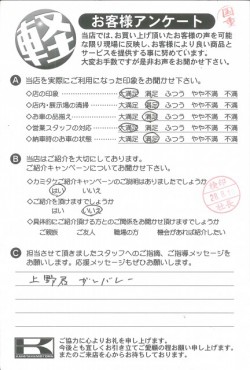 軽
お客様アンケート
当店では、お買い上げ頂いたお客様の声を可能
な限り現場に反映し、お客様により良い商品と
サービスを提供する事に努めています。
大変お手数ですが是非お声をお聞かせ下さい。
A 当店を実際にご利用になった印象をお聞かせ下さい。
◇店の印象 大満足 満足 ふつう やや不満 不満
◇店内・展示場の清掃 大満足 満足 ふつう やや不満 不満
◇お車の品揃え 大満足 満足 ふつう やや不満 不満
◇営業スタッフの対応 大満足 満足 ふつう やや不満 不満
◇納車時のお車の状態 大満足 満足 ふつう やや不満 不満
B 当店はご紹介を大切にしております。
ご紹介キャンペーンについてお聞かせ下さい。
◇カミタケご紹介キャンペーンの説明はありましたでしょうか
はい いいえ
◇ご紹介を頂けますでしょうか
はい いいえ
◇具体的にご紹介頂ける方とのご関係をお聞かせ頂けますでしょうか
ご親族 ご友人 職場の方 機会があれば紹介したい
C 担当させて頂きましたスタッフへのご指摘、ご指導メッセージを
お願いします。応援メッセージもぜひお願いします。
上野君 ガンバレー
K
ご協力に心よりお礼を申し上げます。
今後とも宜しくお引き立てご愛顧の程お願い申し上げます。
またのご来店を心からお待ちしております。